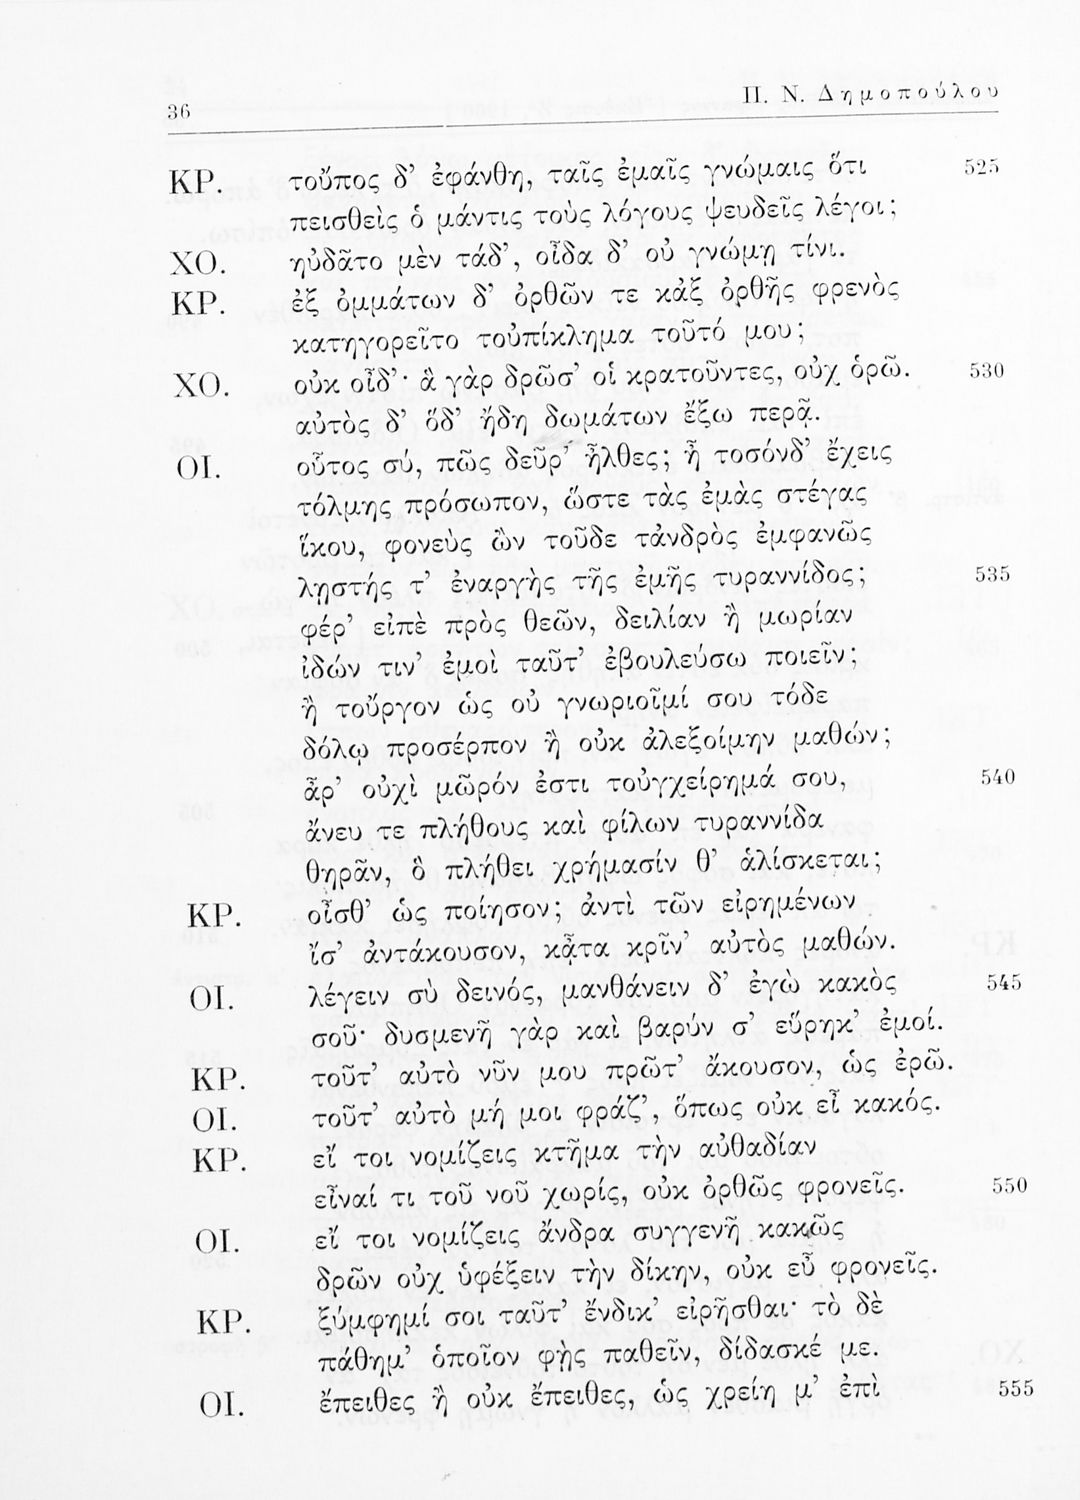 36
Π. Ν. Δημοπούλου
ΚΡ. τοὔπος δ' ἐφάνθη, ταῖς ἐμαῖς γνώμαις ὅτι 525
πεισθεὶς ὁ μάντις τοὺς λόγους ψευδεῖς λέγοι;
ΧΟ. ηὐδᾶτο μὲν τάδ', οἶδα δ' οὐ γνώμῃ τίνι.
ΚΡ. ἐξ ὀμμάτων δ' ὀρθῶν τε κἀξ ὀρθῆς φρενὸς
κατηγορεῖτο τοὐπίκλημα τοῦτό μου;
ΧΟ. οὐκ οἶδ'· ἃ γὰρ δρῶσ' οἱ κρατοῦντες, οὐχ ὁρῶ. 530
αὐτὸς δ' ὅδ' ἤδη δωμάτων ἔξω περᾷ.
ΟΙ. οὗτος σύ, πῶς δεῦρ' ἦλθες; ἦ τοσόνδ' ἔχεις
τόλμης πρόσωπον, ὥστε τὰς ἐμὰς στέγας
ἵκου, φονεὺς ὢν τοῦδε τἀνδρὸς ἐμφανῶς
λῃστής τ' ἐναργὴς τῆς ἐμῆς τυραννίδος; 535
φέρ' εἰπὲ πρὸς θεῶν, δειλίαν ἢ μωρίαν
ἰδών τιν' ἐμοὶ ταῦτ' ἐβουλεύσω ποιεῖν;
ἢ τοὔργον ὡς οὐ γνωριοῖμί σου τόδε
δόλῳ προσέρπον ἢ οὐκ ἀλεξοίμην μαθών;
ἆρ' οὐχὶ μῶρόν ἐστι τοὐγχείρημά σου, 540
ἄνευ τε πλήθους καὶ φίλων τυραννίδα
θηρᾶν, ὃ πλήθει χρήμασίν θ' ἁλίσκεται;
ΚΡ. οἶσθ' ὡς ποίησον; ἀντὶ τῶν εἰρημένων
ἴσ' ἀντάκουσον, κᾆτα κρῖν' αὐτὸς μαθών.
ΟΙ. λέγειν σὺ δεινός, μανθάνειν δ' ἐγὼ κακὸς 545
σοῦ· δυσμενῆ γὰρ καὶ βαρύν σ' εὕρηκ' ἐμοί.
ΚΡ. τοῦτ' αὐτὸ νῦν μου πρῶτ' ἄκουσον, ὡς ἐρῶ.
ΟΙ. τοῦτ' αὐτὸ μή μοι φράζ', ὅπως οὐκ εἶ κακός.
ΚΡ. εἴ τοι νομίζεις κτῆμα τὴν αὐθαδίαν
εἶναί τι τοῦ νοῦ χωρίς, οὐκ ὀρθῶς φρονεῖς. 550
ΟΙ. εἴ τοι νομίζεις ἄνδρα συγγενῆ κακῶς
δρῶν οὐχ ὑφέξειν τὴν δίκην, οὐκ εὖ φρονεῖς.
ΚΡ. ξύμφημί σοι ταῦτ' ἔνδικ' εἰρῆσθαι· τὸ δὲ
πάθημ' ὁποῖον φῂς παθεῖν, δίδασκέ με.
ΟΙ. ἔπειθες ἢ οὐκ ἔπειθες, ὡς χρείη μ' ἐπὶ 555